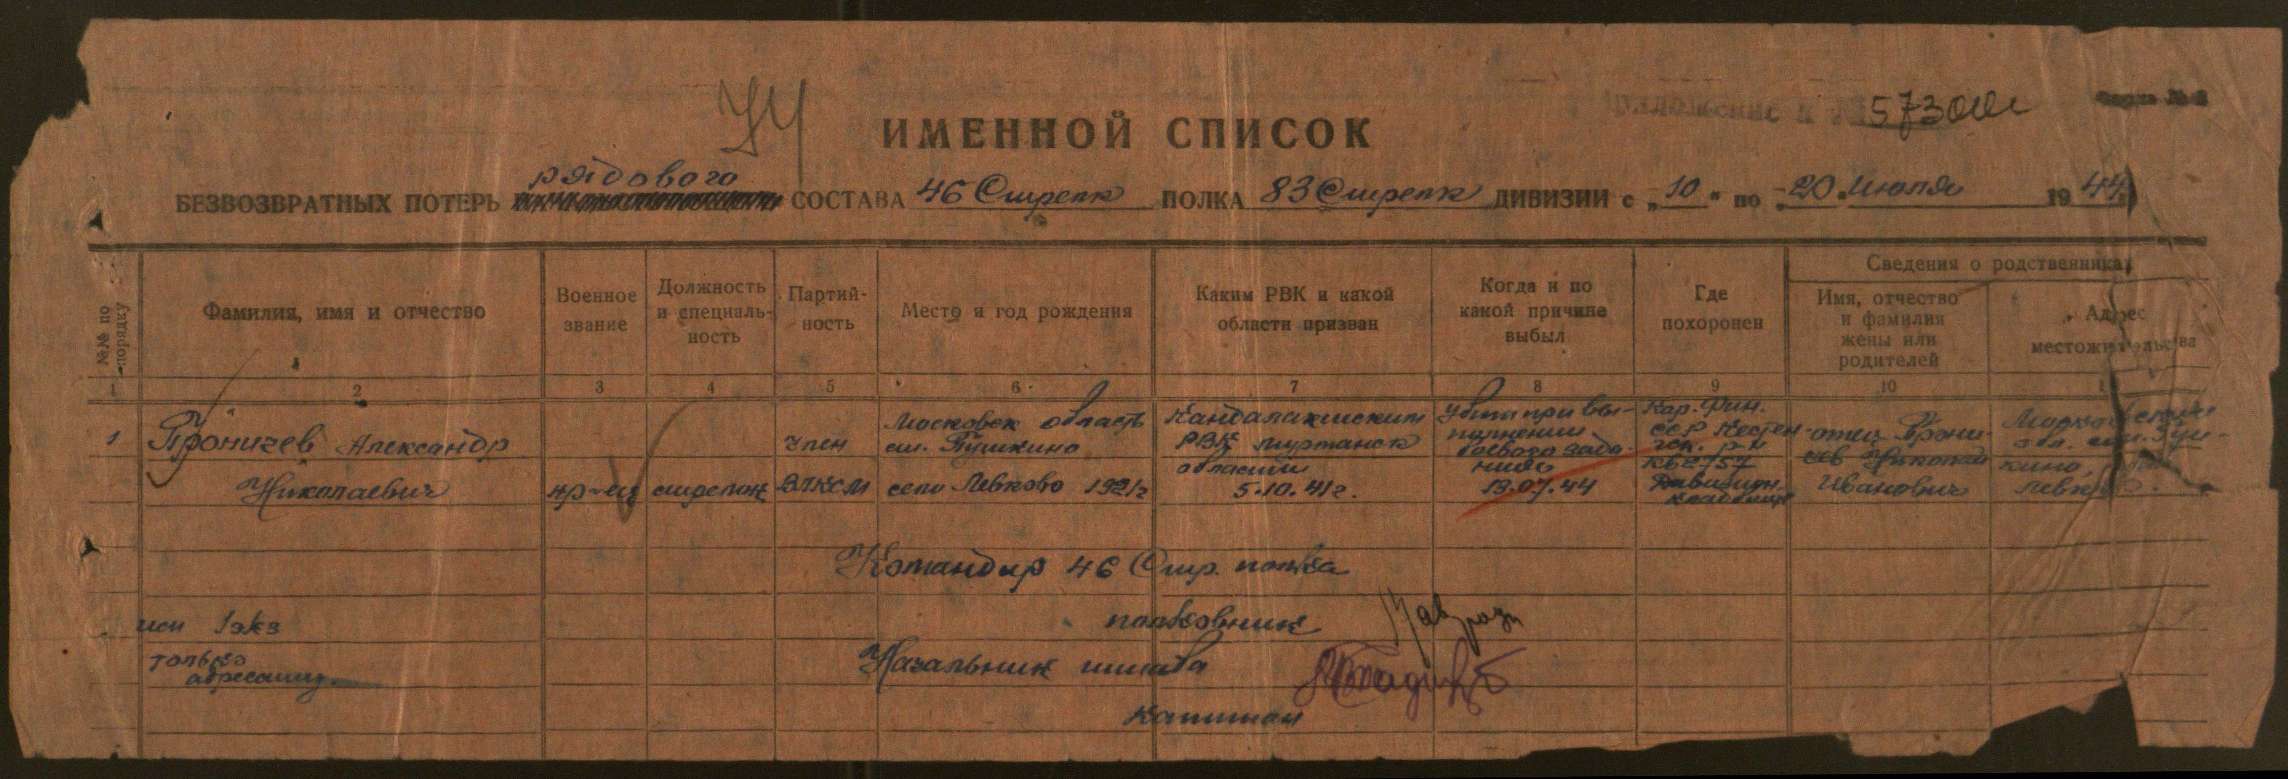 573011с
УЧ
ИМЕННОЙ СПИСОК
рядового
БЕЗВОЗВРАТНЫХ ПОТЕРЬ СОСТАВА 46 Стрелк ПОЛКА 83 Стрелк ДИВИЗИИ с „10" по „20" июля 1944
№№ по порядку
Фамилия, имя и отчество
Военное звание
Должность и специальность
Партийность
Место и год рождения
Каким РВК и какой области призван
Когда и по какой причине выбыл
Где похоронен
Сведения о родственниках
Имя, отчество и фамилия жены или родителей
Адрес местожительства
1 2 3 4 5 6 7 8 9 10
1
Проничев Александр
Николаевич
кр-ец
стрелок
член
ВЛКСМ
Московск область
ст. Пушкино
село Левково 1921г
Кандалакшским
РВК Мурманск
области
5.10.41г.
Убит при вы-
полнении
боевого зада-
ния
19.07.44
Кар. Фин.
ССР Кестен-
гск. р-н
кв 2757
Дивизион.
кладбище
отец Прони-
чев Николай
Иванович
Московская
обл. ст. Пуш-
кино,
Командир 46 Стр. полка
полковник
исп 1 экз
только
адресату.
Начальник штаба
капитан